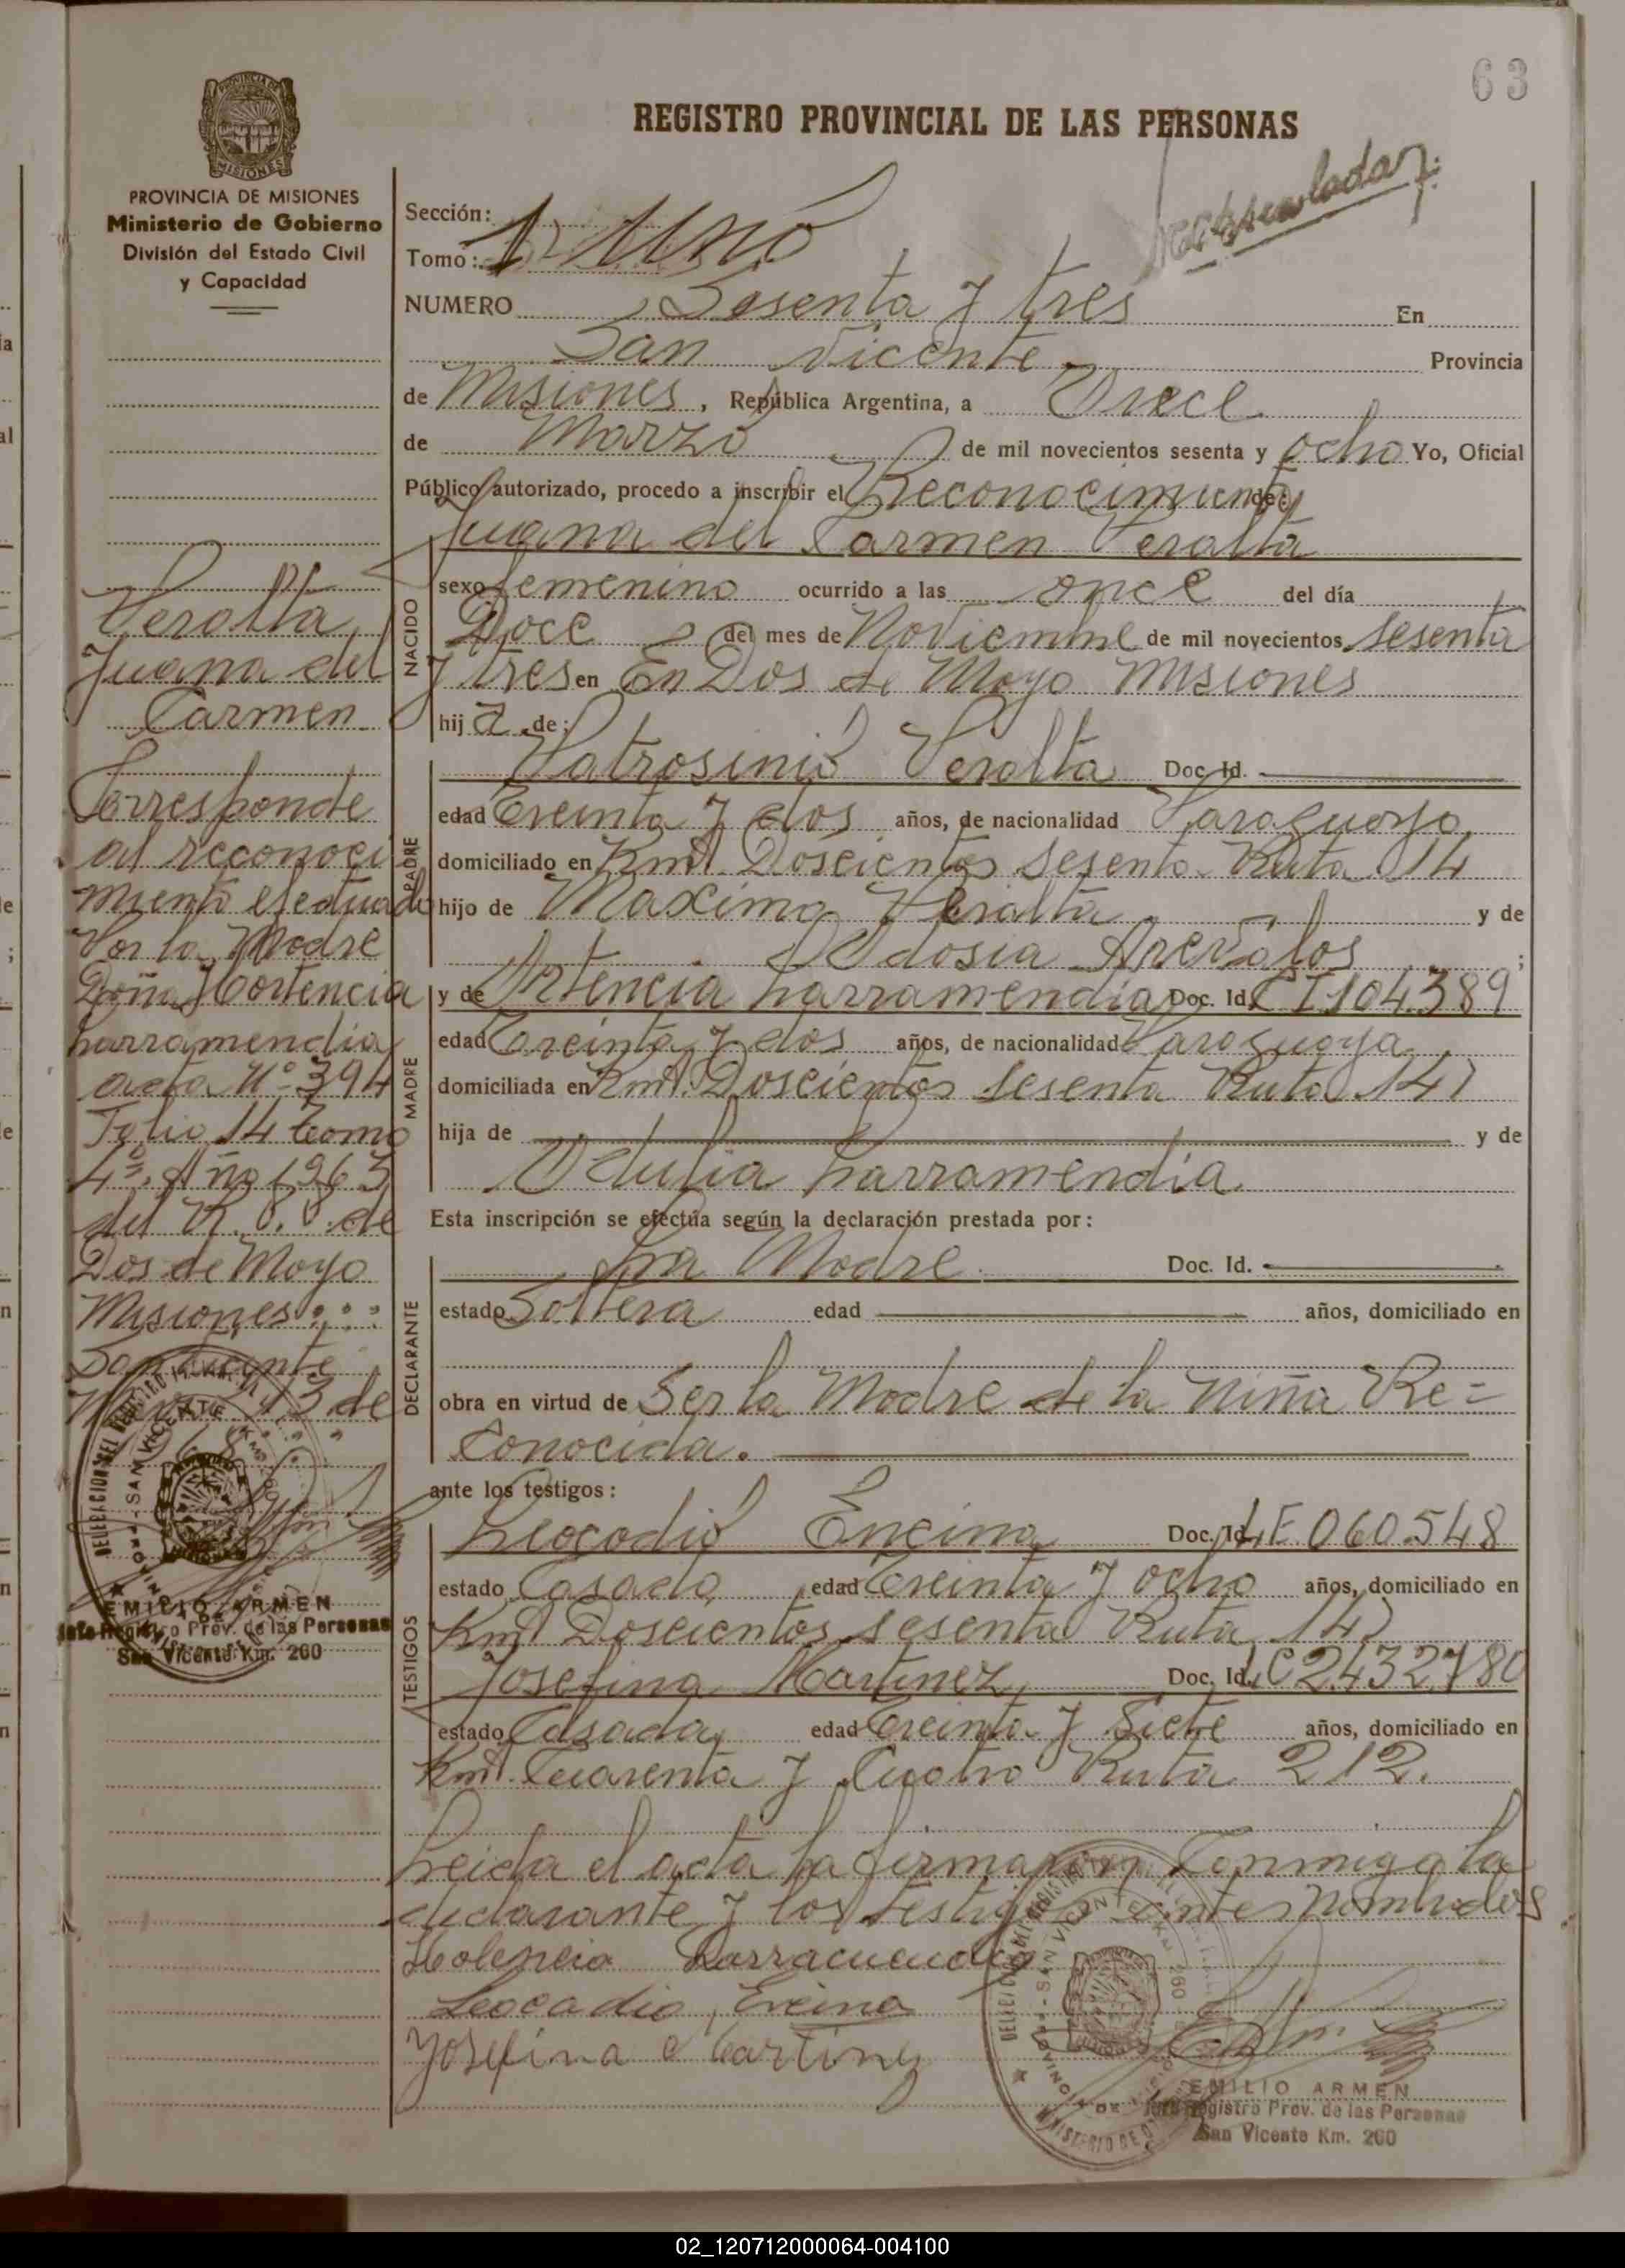 63
REGISTRO PROVINCIAL DE LAS PERSONAS
PROVINCIA DE MISIONES
Ministerio de Gobierno
División del Estado Civil
y Capacidad
Sección:
Tomo: 1º Uno
NUMERO Sesenta y tres En
San Vicente Provincia
de Misiones, República Argentina, a Trece
de Marzo de mil novecientos sesenta y ocho Yo, Oficial
Público autorizado, procedo a inscribir el Reconocimiento de:
Juana del Carmen Peralta
NACIDO
sexo femenino ocurrido a las once del día
Doce del mes de Noviembre de mil novecientos sesenta
y tres en En Dos de Mayo Misiones
hija de:
PADRE
Patrosinio Peralta Doc. Id.
edad Treinta y dos años, de nacionalidad Paraguayo
domiciliado en Kmt. Doscientos sesenta Ruta 14
hijo de Maximo Peralta y de
Odosia Arevalos;
MADRE
y de Ortencia Larramendia Doc. Id. CI 104.389
edad Treinta y dos años, de nacionalidad Paraguaya
domiciliada en Kmt. Doscientos sesenta Ruta 14
hija de y de
Odulia Larramendia
Esta inscripción se efectúa según la declaración prestada por:
DECLARANTE
La Madre Doc. Id.
estado Soltera edad años, domiciliado en
obra en virtud de Ser la Madre de la Niña Re=
conocida.
ante los testigos:
TESTIGOS
Leocadio Encina Doc. Id. LE 060.548
estado Casado edad Treinta y ocho años, domiciliado en
Kmt Doscientos sesenta Ruta 14
Josefina Martinez Doc. Id. LC 2.432.780
estado Casada edad Treinta y Siete años, domiciliado en
Kmt. Cuarenta y Cuatro Ruta 212.
Leida el acta la firmaron Conmigo la
declarante y los testigos antes nombrados
Larramendia
Leocadio Encina
Josefina Martinez
EMILIO ARMEN
Jefe Registro Prov. de las Personas
San Vicente Km. 260
Peralta
Juana del
Carmen
Corresponde
al reconoci
miento efectuado
Por la Madre
Doña Hortencia
Larramendia
acta Nº 394
Folio 14 Tomo
4º. Año 1963
del R.P.P. de
Dos de Mayo
Misiones
San Vicente
13 de
EMILIO ARMEN
Jefe Registro Prov. de las Personas
San Vicente Km. 260
02_120712000064-004100